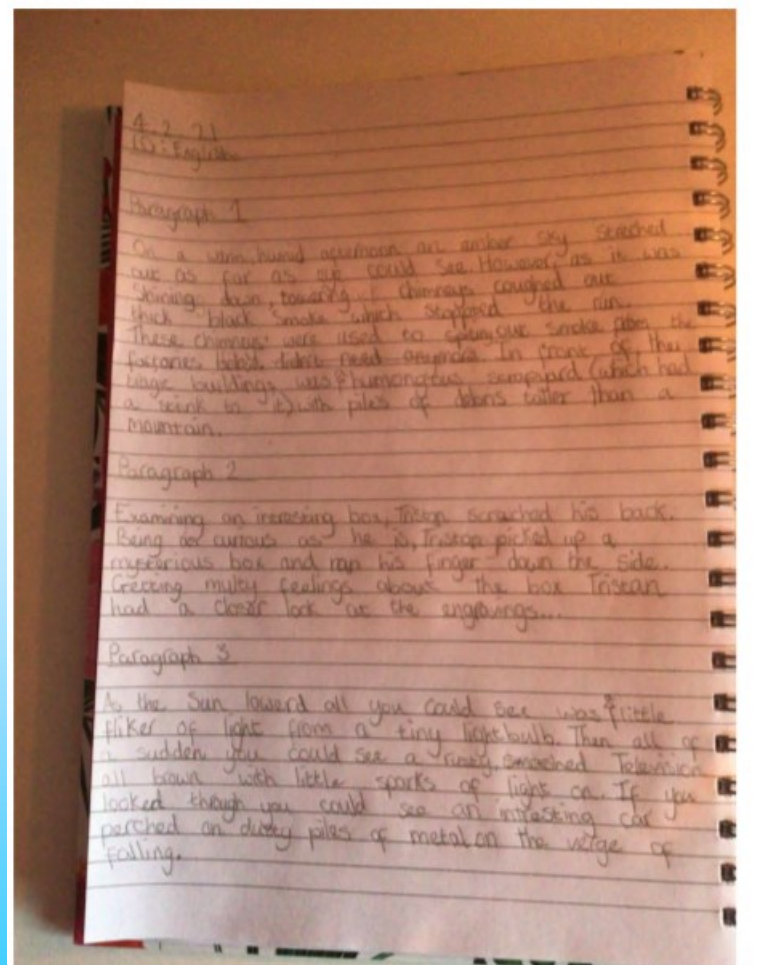 4.2.21
LO: English
Paragraph 1
On a warm, humid afternoon an amber sky streched
out as far as eye could see. However, as it was
Shining down, towering chimneys coughed out
thick black smoke which stopped the sun.
These chimneys were used to smoke the
factories didn't need anymore. In front of the
buildings was a humongous scrapyard (which had
a stink to it) with piles of debris taller than a
mountain.
Paragraph 2
Examining an intresting box, Tristan scrached his back.
Being as curious as he is, Tristan picked up a
mysterious box and ran his finger down the side.
Getting multy feelings about the box Tristan
had a closer look at the engravings...
Paragraph 3
As the Sun lowerd all you could see was a little
fliker of light from a tiny lightbulb. Then all of
a sudden you could see a rusty, smashed Television
all brown with little sparks of light on. If you
looked through you could see an intresting car
perched on dusty piles of metal on the verge of
falling.